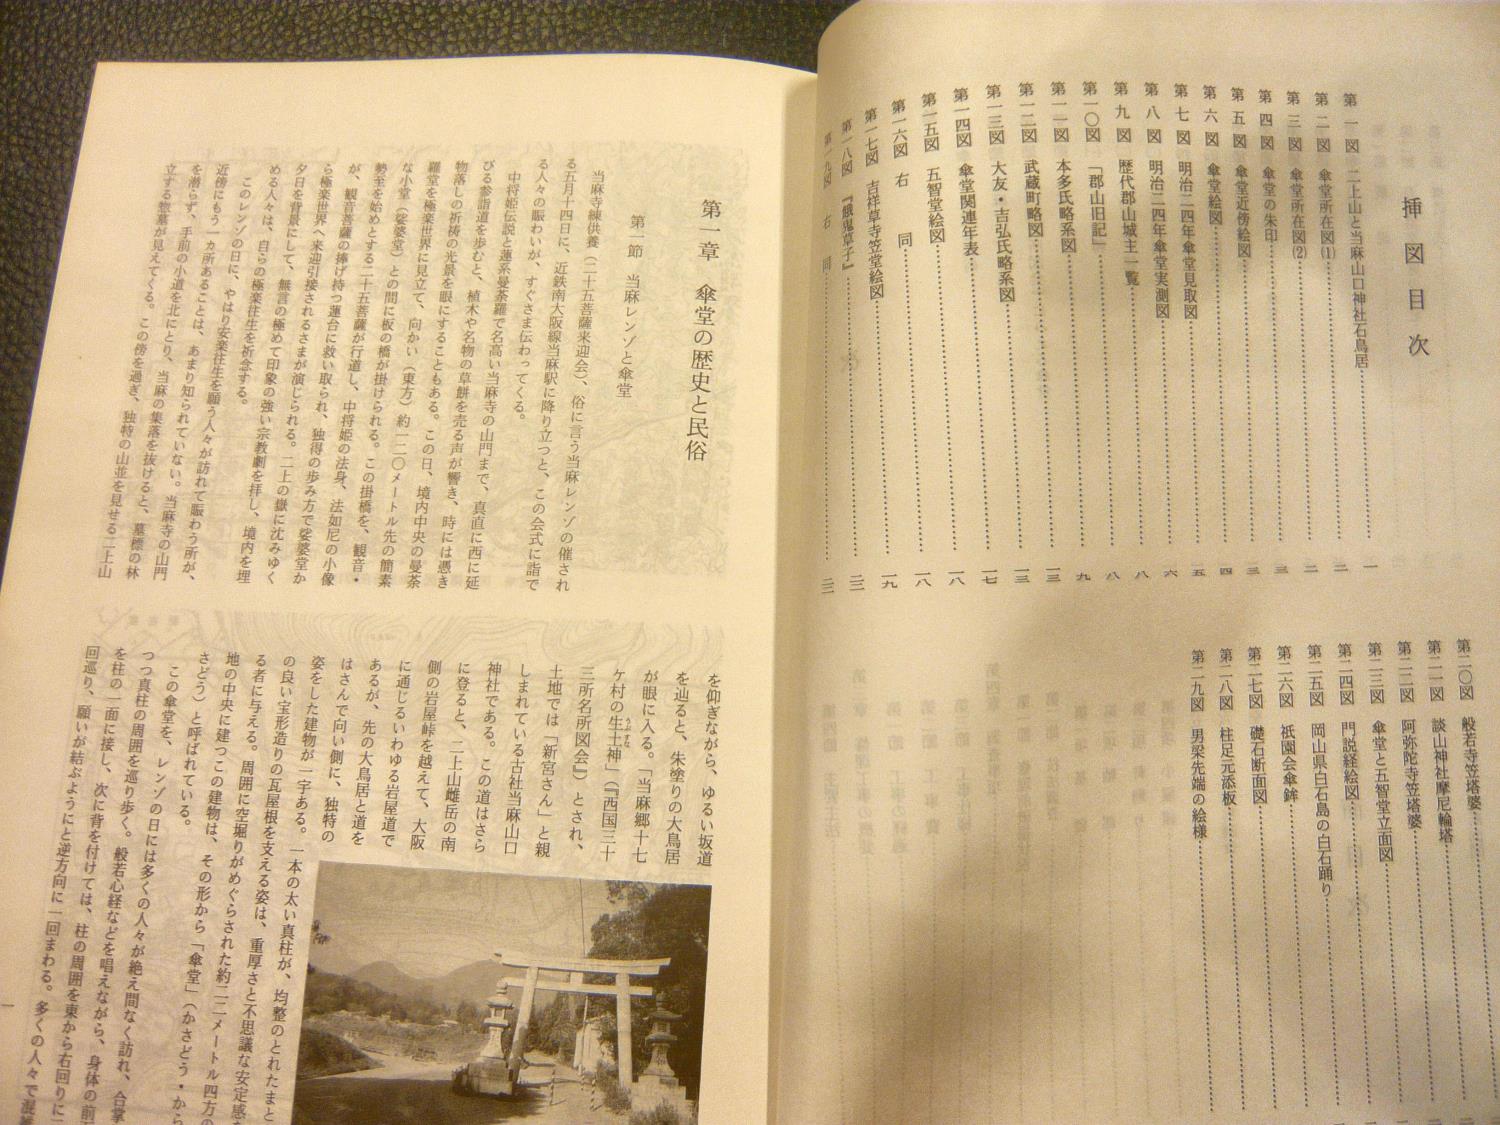 挿図目次
第一図 二上山と当麻山口神社石鳥居 一
第二図 傘堂所在図(1) 二
第三図 傘堂所在図(2) 二
第四図 傘堂の朱印 三
第五図 傘堂近傍絵図 三
第六図 傘堂絵図 四
第七図 明治二四年傘堂見取図 五
第八図 明治二四年傘堂実測図 六
第九図 歴代郡山城主一覧 八
第一〇図 「郡山旧記」 八
第一一図 本多氏略系図 九
第一二図 武蔵町略図 一三
第一三図 大友・吉弘氏略系図 一三
第一四図 傘堂関連年表 一七
第一五図 五智堂絵図 一八
第一六図 右同 一八
第一七図 吉祥草寺笠堂絵図 一九
第一八図 『餓鬼草子』
第一九図 右同
第二〇図 般若寺笠塔婆
第二一図 談山神社摩尼輪塔
第二二図 阿弥陀寺笠塔婆
第二三図 傘堂と五智堂立面図
第二四図 門説経絵図
第二五図 岡山県白石島の白石踊り
第二六図 祇園会傘鉾
第二七図 礎石断面図
第二八図 柱足元添板
第二九図 男梁先端の絵様
第一章 傘堂の歴史と民俗
第一節 当麻レンゾと傘堂
当麻寺練供養(二十五菩薩来迎会)、俗に言う当麻レンゾの催され
る五月十四日に、近鉄南大阪線当麻駅に降り立つと、この会式に詣で
る人々の賑わいが、すぐさま伝わってくる。
中将姫伝説と蓮糸曼荼羅で名高い当麻寺の山門まで、真直に西に延
びる参詣道を歩むと、植木や名物の草餅を売る声が響き、時には憑き
物落しの祈祷の光景を眼にすることもある。この日、境内中央の曼荼
羅堂を極楽世界に見立て、向かい(東方)約一二〇メートル先の簡素
な小堂(娑婆堂)との間に板の橋が掛けられる。この掛橋を、観音・
勢至を始めとする二十五菩薩が行道し、中将姫の法身、法如尼の小像
が、観音菩薩の捧げ持つ蓮台に救い取られ、独得の歩み方で娑婆堂か
ら極楽世界へ来迎引接されるさまが演じられる。二上の嶽に沈みゆく
夕日を背景にして、無言の極めて印象の強い宗教劇を拝し、境内を埋
める人々は、自らの極楽往生を祈念する。
このレンゾの日に、やはり安楽往生を願う人々が訪れて賑わう所が、
近傍にもう一カ所あることは、あまり知られていない。当麻寺の山門
を潜らず、手前の小道を北にとり、当麻の集落を抜けると、墓標の林
立する惣墓が見えてくる。この傍を過ぎ、独特の山並を見せる二上山
を仰ぎながら、ゆるい坂道
を辿ると、朱塗りの大鳥居
が眼に入る。「当麻郷十七
ケ村の生土神」(『西国三十
三所名所図会』)とされ、
土地では「新宮さん」と親
しまれている古社当麻山口
神社である。この道はさら
に登ると、二上山雌岳の南
側の岩屋峠を越えて、大阪
に通じるいわゆる岩屋道で
あるが、先の大鳥居と道を
はさんで向い側に、独特の
姿をした建物が一宇ある。一本の太い真柱が、均整のとれたまと
の良い宝形造りの瓦屋根を支える姿は、重厚さと不思議な安定感
る者に与える。周囲に空堀りがめぐらされた約二二メートル四方の
地の中央に建つこの建物は、その形から「傘堂」(かさどう・から
さどう)と呼ばれている。
この傘堂を、レンゾの日には多くの人々が絶え間なく訪れ、合掌
つつ真柱の周囲を巡り歩く。般若心経などを唱えながら、身体の前
を柱の一面に接し、次に背を付けては、柱の周囲を東から右回りに
回巡り、願いが結ぶようにと逆方向に一回まわる。多くの人々で混
一